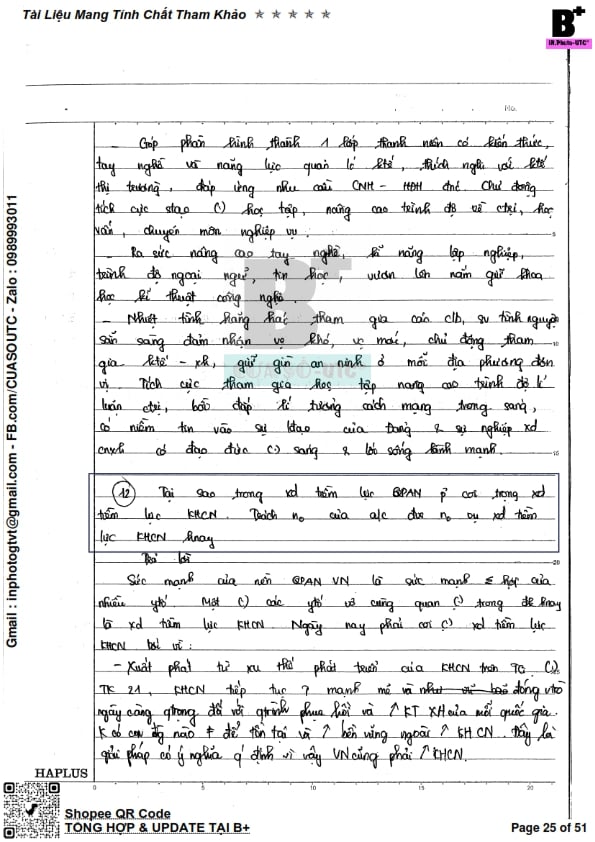 Tài Liệu Mang Tính Chất Tham Khảo ★ ★ ★ ★ ★
B+
IN.Photo-UTC
No.
- Góp phần hình thành 1 lớp thanh niên có kiến thức,
tay nghề và năng lực quản lí ktế, thích nghi với ktế
thị trường, đáp ứng nhu cầu CNH - HĐH đnc. Chủ động
tích cực stạo (.) học tập, nâng cao trình độ về ctrị, học
vấn, chuyên môn nghiệp vụ.
- Ra sức nâng cao tay nghề, kĩ năng lập nghiệp,
trình độ ngoại ngữ, tin học, vươn lên nắm giữ khoa
học kĩ thuật công nghệ.
- Nhiệt tình hăng hái tham gia các clb, sv tình nguyện
sẵn sàng đảm nhận vc khó, vc mới, chủ động tham
gia ktế - xh, giữ gìn an ninh ở mỗi địa phương đơn
vị. Tích cực tham gia học tập nâng cao trình độ lí
luận ctrị, bồi đắp lí tưởng cách mạng trong sáng,
có niềm tin vào sự lđạo của Đảng & sự nghiệp xd
cnxh có đạo đức (.) sáng & lối sống lành mạnh.
12 Tại sao trong xd tiềm lực QPAN p coi trọng xd
tiềm lực KHCN. Trách no của a/c đvs no vụ xd tiềm
lực KHCN hnay
Trả lời
Sức mạnh của nền QPAN VN là sức mạnh Σ hợp của
nhiều ytố. Một (.) các ytố vô cùng quan (.) trong đk hnay
là xd tiềm lực KHCN. Ngày nay phải coi (.) xd tiềm lực
KHCN bởi vì:
- Xuất phát từ xu thế phát triển của KHCN trên TG. (.)
TK 21, KHCN tiếp tục ↗ mạnh mẽ và đóng vtrò
ngày càng qtrọng đối với qtrình phục hồi và ↗ KT XH của mỗi quốc gia.
K có con đg nào ≠ để tồn tại và ↗ bền vững ngoài ↗ KHCN. Đây là
giải pháp có ý nghĩa q định vì vậy VN cũng phải ↗ KHCN.
CUASO-UTC
Gmail : inphotogtvt@gmail.com - FB.com/CUASOUTC - Zalo : 0989993011
HAPLUS
Shopee QR Code
TỔNG HỢP & UPDATE TẠI B+
Page 25 of 51